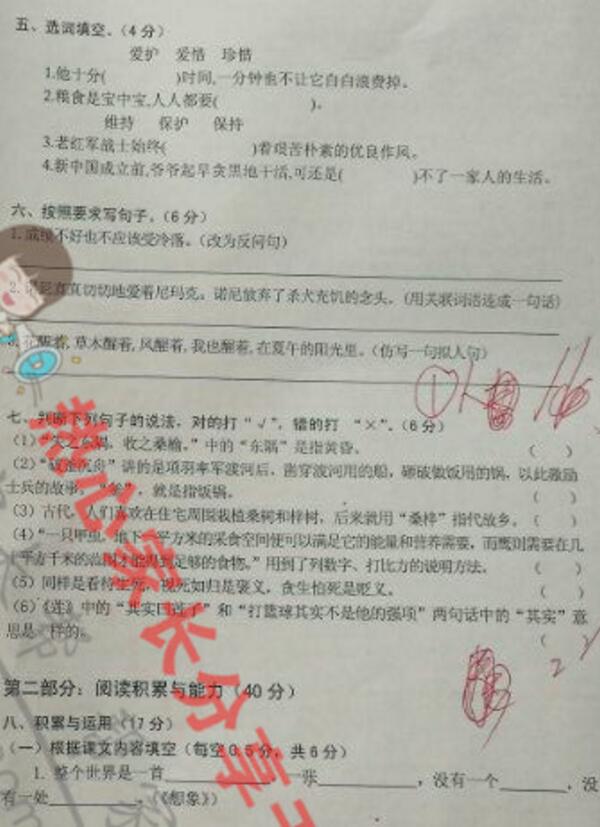 五、选词填空。(4分)
爱护 爱惜 珍惜
1.他十分( )时间,一分钟也不让它白白浪费掉。
2.粮食是宝中宝,人人都要( )。
维持 保护 保持
3.老红军战士始终( )着艰苦朴素的优良作风。
4.新中国成立前,爷爷起早贪黑地干活,可还是( )不了一家人的生活。
六、按照要求写句子。(6分)
1.成绩不好也不应该受冷落。(改为反问句)
2.诺尼真真切切地爱着尼玛克。诺尼放弃了杀犬充饥的念头。(用关联词语连成一句话)
醒着,草木醒着,风醒着,我也醒着,在夏午的阳光里。(仿写一句拟人句)
七、判断下列句子的说法,对的打“√”,错的打“×”。(6分)
(1)“失之东隅,收之桑榆。”中的“东隅”是指黄昏。( )
(2)“破釜沉舟”讲的是项羽率军渡河后,凿穿渡河用的船,砸破做饭用的锅,以此激励
士兵的故事。“釜”,就是指饭锅。( )
(3)古代,人们喜欢在住宅周围栽植桑树和梓树,后来就用“桑梓”指代故乡。( )
(4)“一只甲虫,地下一平方米的采食空间便可以满足它的能量和营养需要,而鹰则需要在几
平方千米的范围才能得到足够的食物。”用到了列数字、打比方的说明方法。( )
(5)同样是看待生死,视死如归是褒义,贪生怕死是贬义。( )
(6)《莲》中的“其实 莲了”和“打篮球其实不是他的强项”两句话中的“其实”意
思是一样的。(
第二部分:阅读积累与能力(40分)
八、积累与运用(17分)
(一)根据课文内容填空(每空0.5分,共6分)
1.整个世界是一首 一张 ,没有一个 ,没
有一处 。(《想象》)
热心家长分享